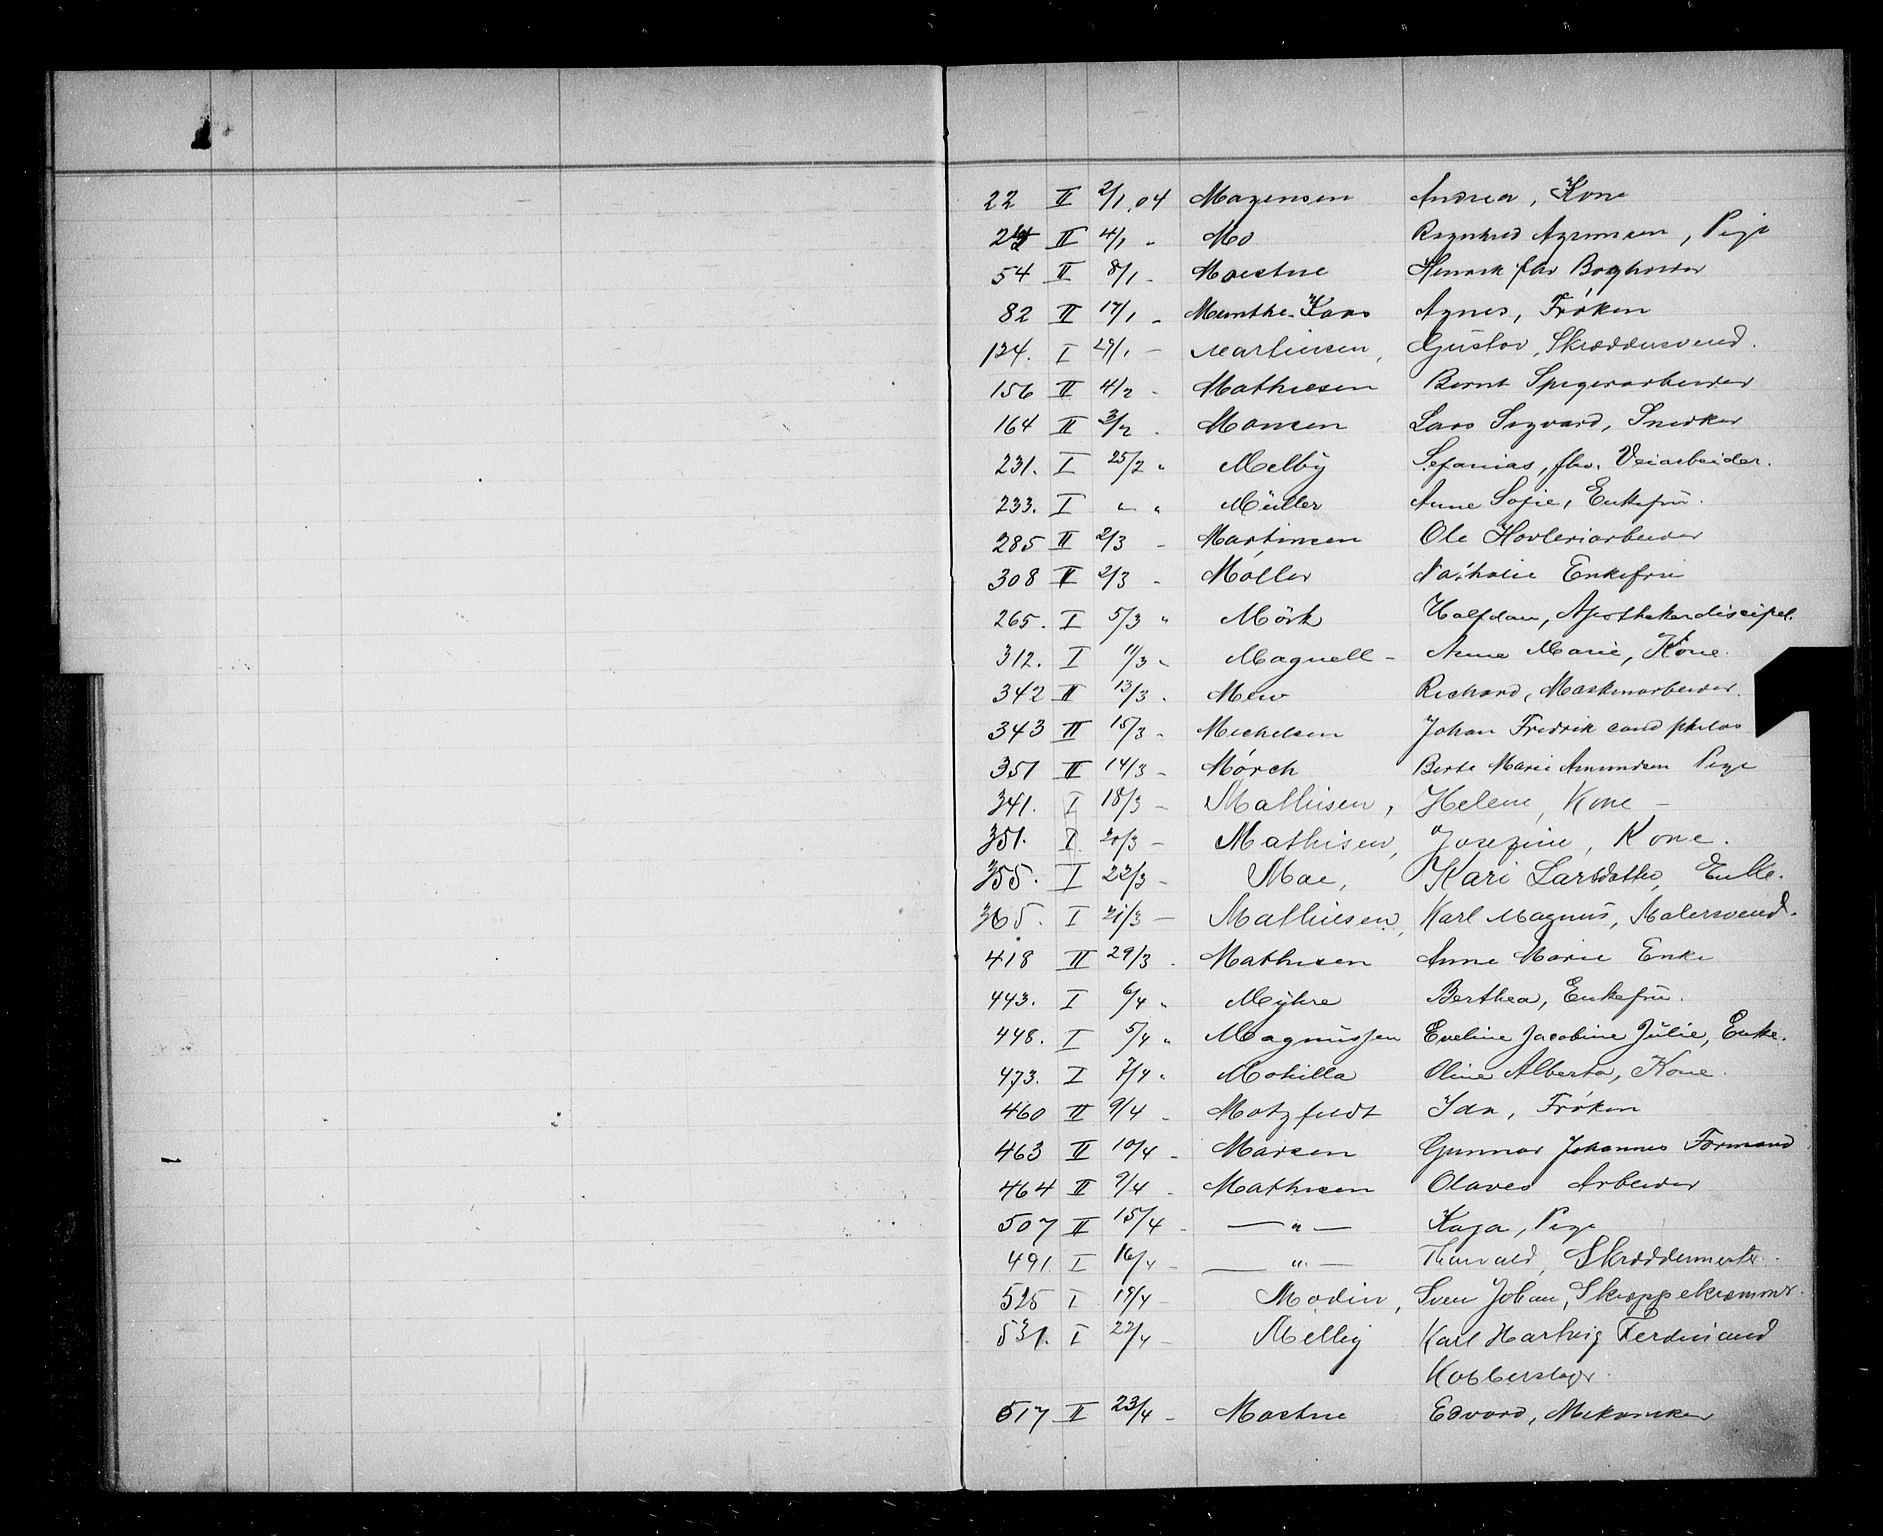 22 II 2/1 .04 Magensen Andrea, Kone
24 II 4/1 „ Mo Ragnhild Agrimsen, Pige
54 II 8/1 - Moestue Henrik fhv Bogholder
82 II 17/1 - Munthe-Kaas Agnes, Frøken
124. I 29/1 - Martinsen, Gustav, Skræddersvend.
156 II 4/2 - Mathiesen Bernt Spigerarbeider
164 II 3/2 - Monsen Lars Sigvard, Snedker
231. I 25/2 „ Melby Sefanias, fhv. Veiarbeider.
233. I „ „ Müller Anne Sofie, Enkefru.
285 II 2/3 - Martinsen Ole Høvleriarbeider
308 II 2/3 - Møller Nathalie Enkefru
265. I 5/3 „ Mörk Halfdan, Apothekerdiscipel.
312. I 11/3 „ Magnell - Anne Marie, Kone.
342 II 13/3 . Mew Richard, Maskinarbeider.
343 II 15/3 - Michelsen Johan Fredrik cand philos
351 II 14/3 - Mørch Berte Marie Amundsen Pige
341. I 18/3 - Mathisen, Helene, Kone -
351. I 20/3 - Mathisen, Josefine, Kone.
355. I 22/3 - Moe, Kari Larsdatter, Enke.
365. I 21/3 - Mathiesen, Karl Magnus, Malersvend.
418 II 29/3 . Mathisen Anne Marie Enke
443. I 6/4 „ Myhre Berthea, Enkefru.
448. I 5/4 „ Magnussen Eveline Jacobine Julie, Enke.
473. I 7/4 „ Mokilla Oline Alberta, Kone.
460 II 9/4 - Motzfeldt Ida, Frøken
463 II 10/4 - Marsen Gunnar Johannes Formand
464 II 9/4 - Mathisen Olaves Arbeider
507 II 15/4 - — „ — Kaja, Pige
491 I 16/4 - — „ — Thorvald, Skræddermester.
525 I 19/4 - Modin, Sven Johan, Skræppekræmmer.
531. I 22/4 - Melby Karl Hartvig Ferdinand
Kobberslager.
517 II 23/4 - Mostue Edvard, Mekaniker